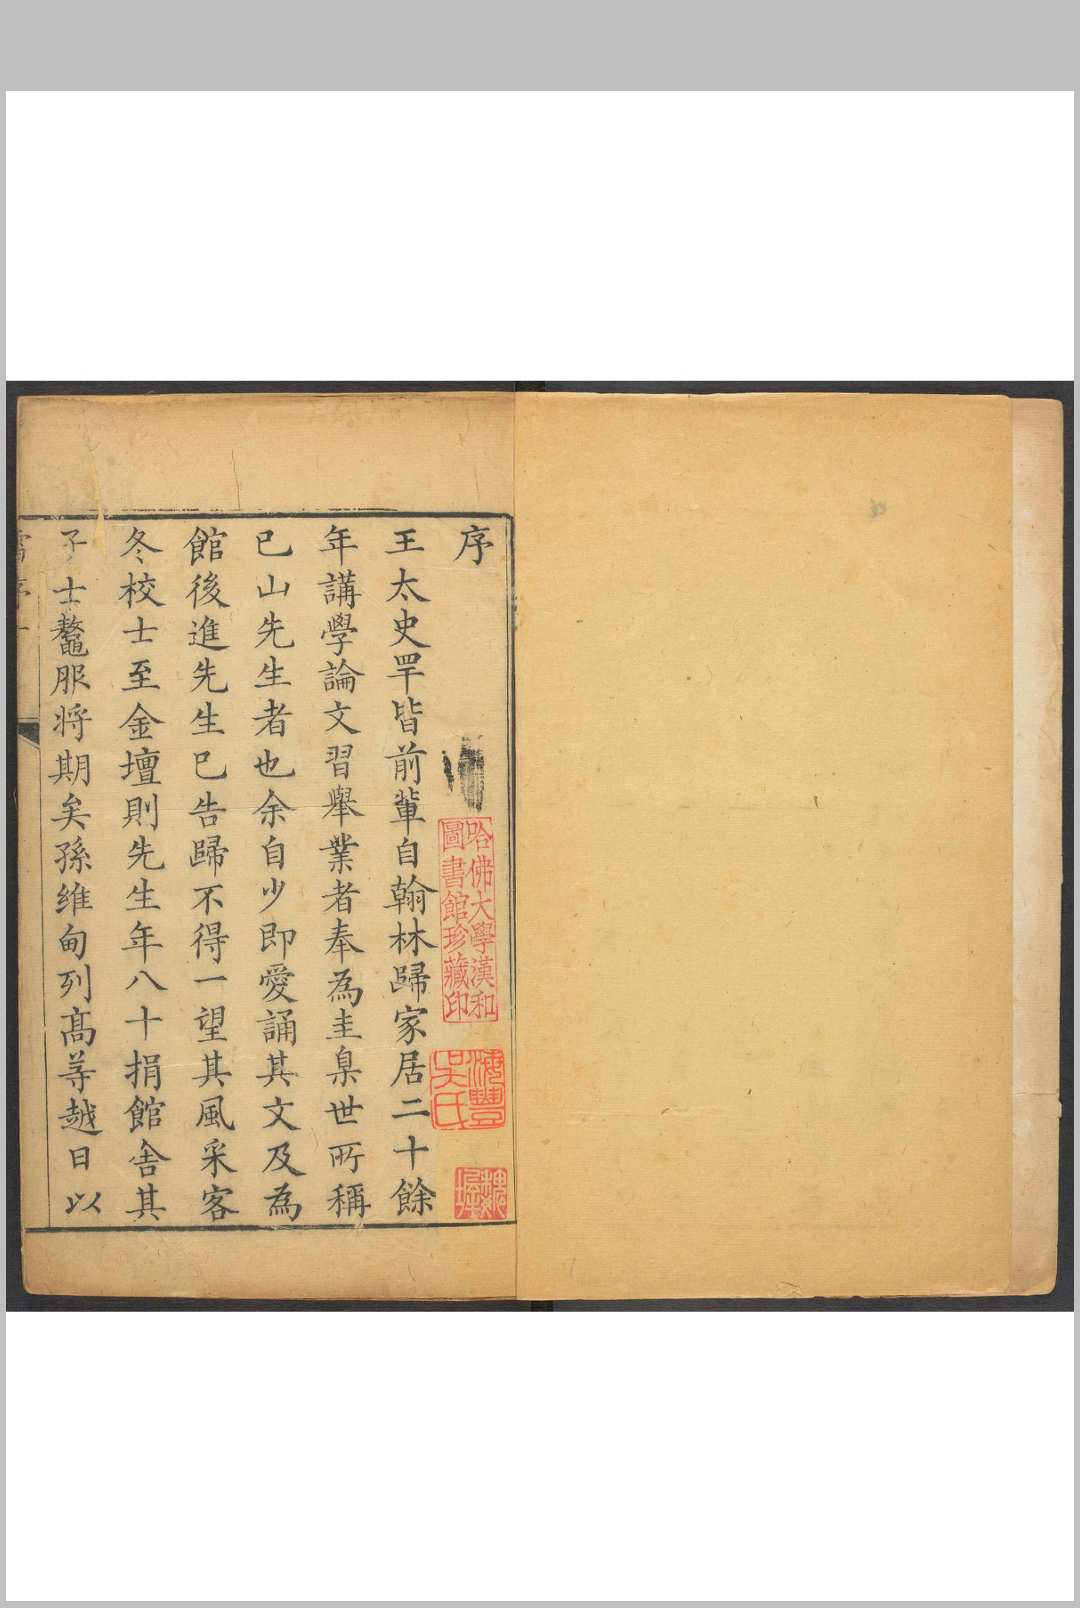 序
王太史罕皆前輩自翰林歸家居二十餘
年講學論文習舉業者奉為圭臬世所稱
已山先生者也余自少即愛誦其文及為
館後進先生已告歸不得一望其風采客
冬校士至金壇則先生年八十捐館舍其
子士鼇服将期矣孫維甸列髙等越日以
哈佛大學漢和
圖書館珍藏印
海豐
吳氏